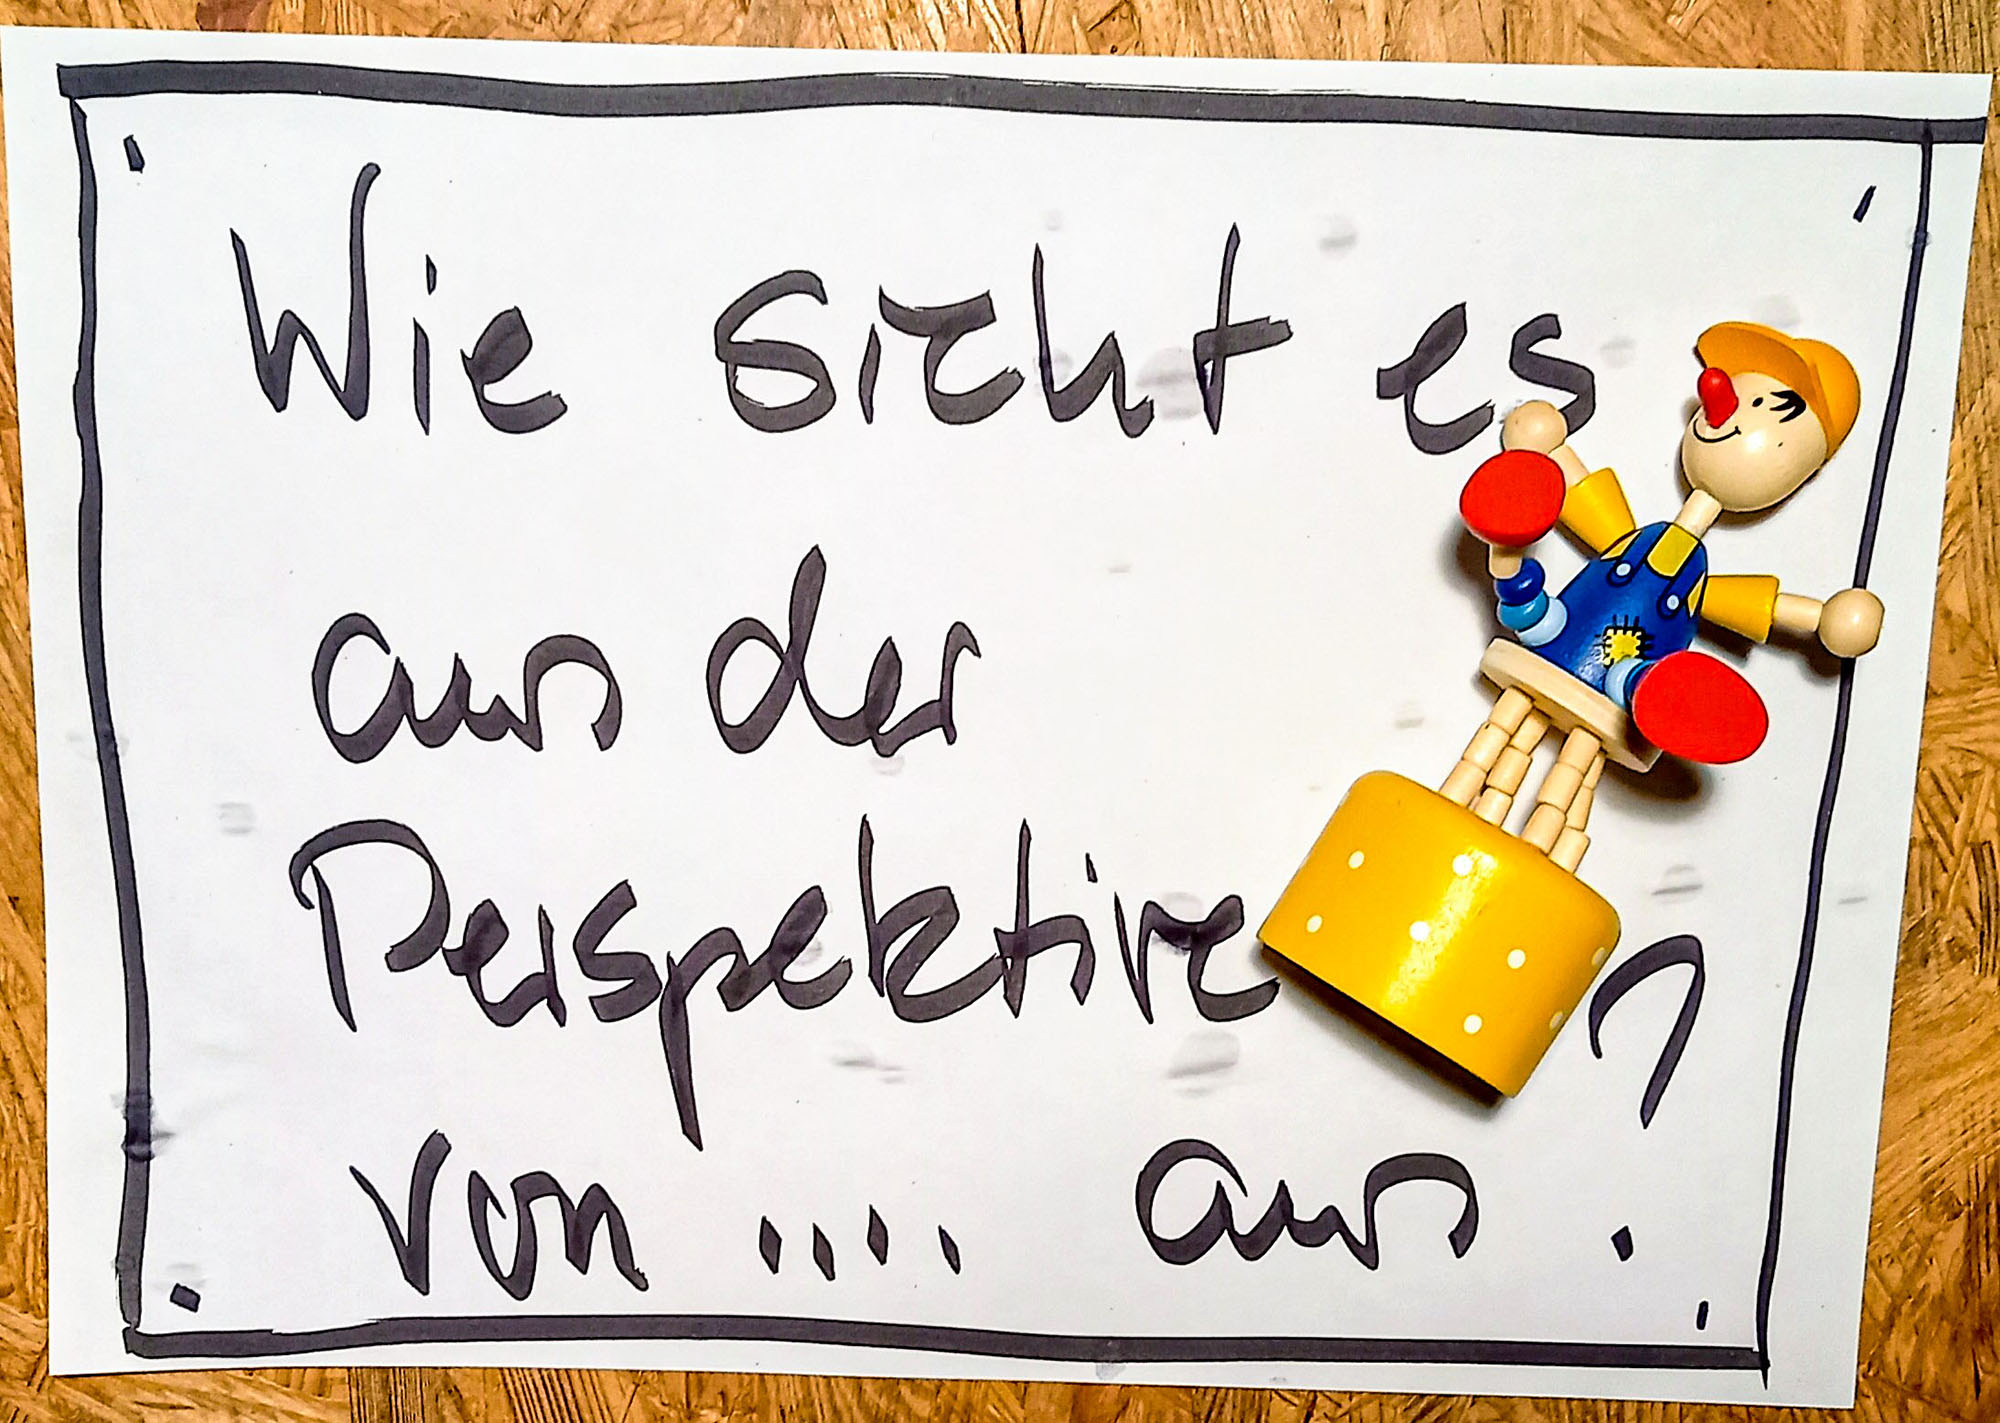 Wie sieht es
aus der
Perspektive
von .... aus ?